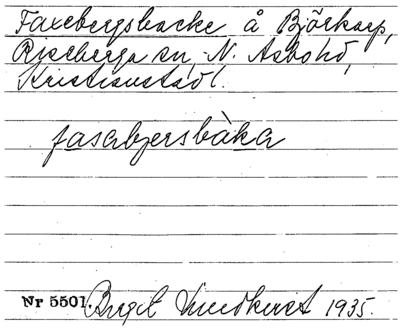 Faxebergsbacke å Björkarp,
Riseberga sn, N. Åsbo hd,
Kristianstad l.
fasabjersbàka
Nr 5501. Birgit Lundkvist 1935.